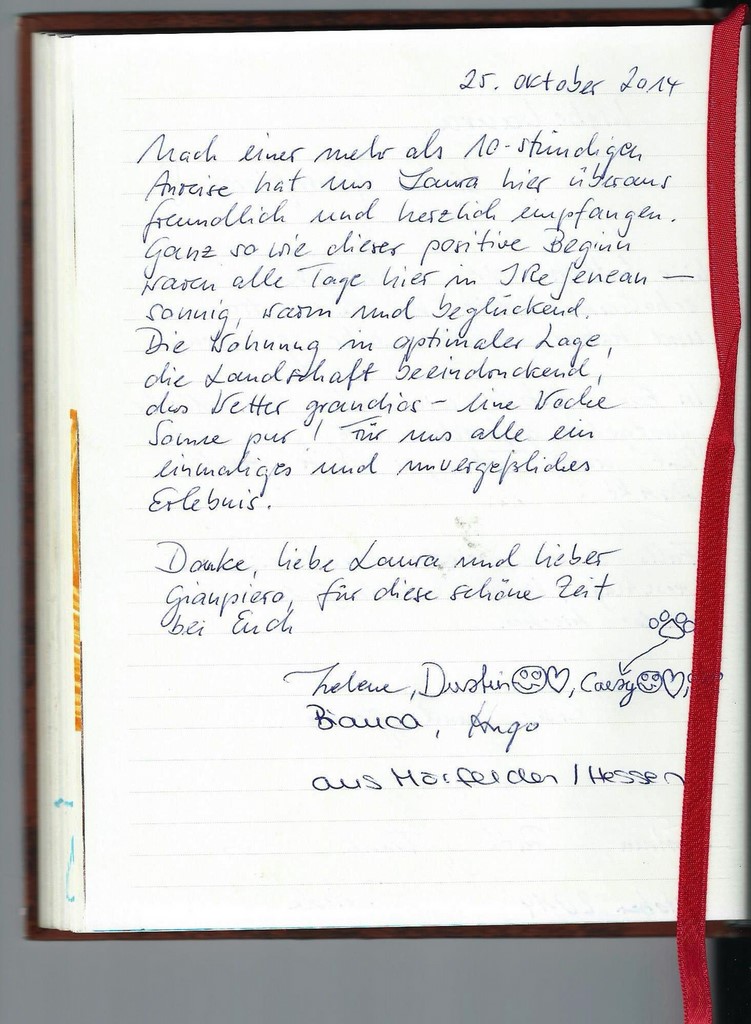 25. Oktober 2014
Nach einer mehr als 10-stündigen
Anreise hat uns Laura hier überaus
freundlich und herzlich empfangen.
Ganz so wie dieser positive Beginn
waren alle Tage hier in –
sonnig, warm und beglückend.
Die Wohnung in optimaler Lage,
die Landschaft beeindruckend,
das Wetter grandios – eine Woche
Sonne pur! Für uns alle ein
einmaliges und unvergeßliches
Erlebnis.
Danke, liebe Laura und lieber
Gianpiero, für diese schöne Zeit
bei Euch
Helene, Dustin,
Bianca, Ingo
aus Mörfelden / Hessen